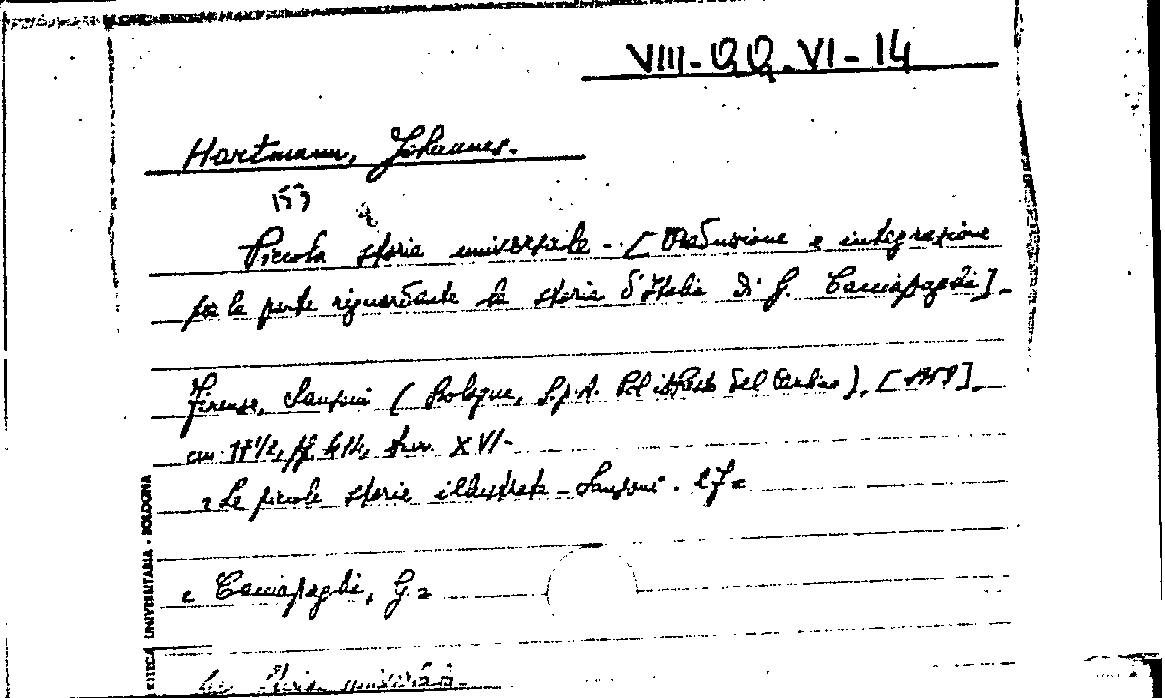 VIII-QQ.VI-14
Hartmann, Johannes.
153
Piccola storia universale - [Traduzione e integrazione
per la parte riguardante la storia d'Italia di G. Cacciapaglia].
Firenze, Sansoni (Bologna, S.p.A. Poligrafici del Carlino), [195
cm 17 1/2, pp. 414, tav. XVI-
= Le piccole storie illustrate - Sansoni. 27=
= G. =
Storia universale
BIBLIOTECA UNIVERSITARIA - BOLOGNA